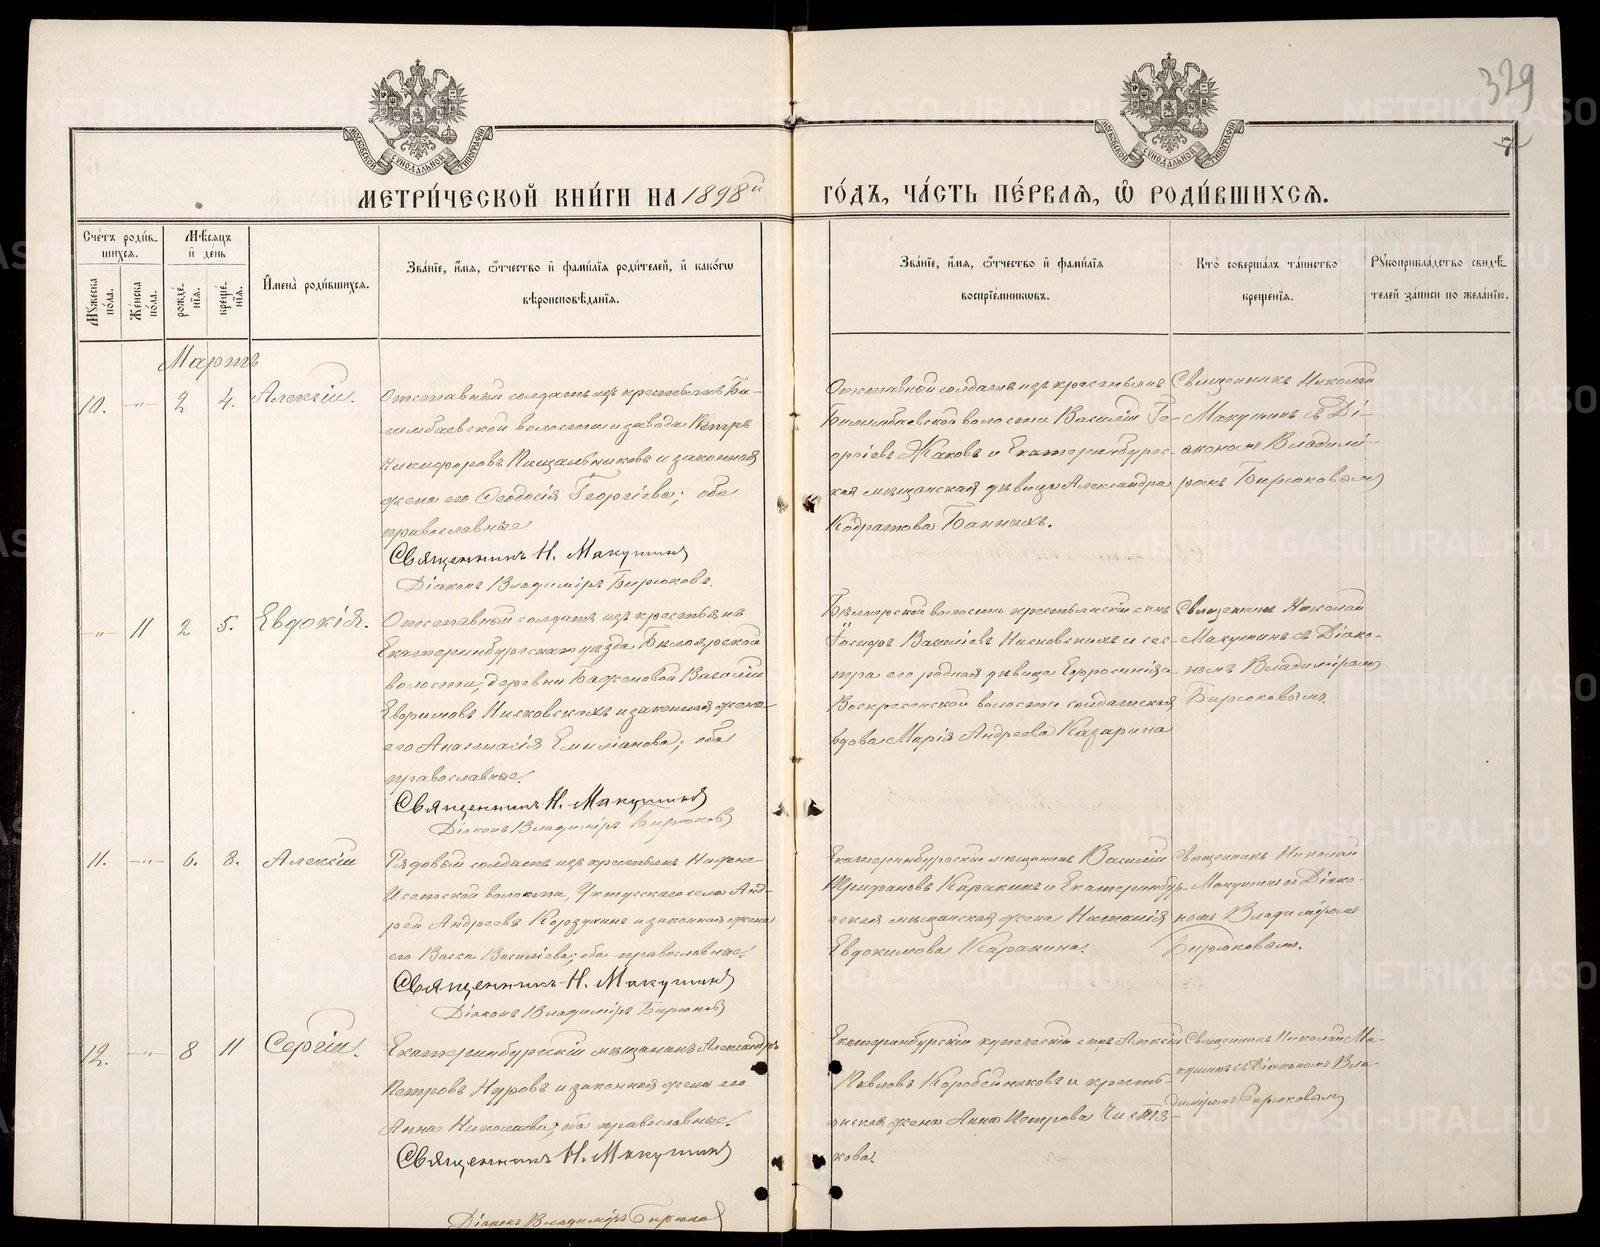 329
МОСКОВСКОЙ СѴНОДАЛЬНОЙ ТИПОГРАФІИ
МОСКОВСКОЙ СѴНОДАЛЬНОЙ ТИПОГРАФІИ
МЕТРИ́ЧЕСКОЙ КНИ́ГИ НА 1898й
ГО́ДЪ, ЧА́СТЬ ПЕ́РВАѦ, Ѡ҆ РОДИ́ВШИХСѦ.
Сче́тъ роди́в-
шихсѧ.
Мѣ́сѧцъ
и҆ де́нь
Мꙋ́жеска по́ла.
Же́нска по́ла.
рожде́-нїѧ.
креще́-нїѧ.
И҆мена̀ роди́вшихсѧ.
Зва́нїе, и҆́мѧ, ѻ҆́тчество и҆ фами́лїѧ роди́телей, и҆ како́гѡ
вѣроисповѣ́данїѧ.
Зва́нїе, и҆́мѧ, ѻ҆́тчество и҆ фами́лїѧ
воспрїе́мникѡвъ.
Кто̀ соверша́лъ та́инство
креще́нїѧ.
Рꙋкоприкла́дство свидѣ́-
телей за́писи по жела́нїю.
Мартъ
10. -„- 2 4. Алексій.
Отставный солдатъ изъ крестьянъ Би-
лимбаевской волости и завода Петръ
Никифоровъ Пищальниковъ и законная
жена его Ѳеодосія Георгіева; оба
православные
Священникъ Н. Макушинъ
Діаконъ Владиміръ Бирюковъ.
Отставный солдатъ изъ крестьянъ
Билимбаевской волости Василій Ге-
оргіевъ Жаковъ и Екатеринбургс-
кая мѣщанская дѣвица Александра
Кодратова Банныхъ.
Священникъ Николай
Макушинъ съ Ді-
акономъ Владимі-
ромъ Бирюковымъ
-„- 11 2 5. Евдокія.
Отставный солдатъ изъ крестьянъ
Екатеринбургскаго уѣзда Бѣлоярской
волости, деревни Баженовой Василій
Евфимовъ Нисковскихъ и законная жена
его Анастасія Емиліанова; оба
православные.
Священникъ Н. Макушинъ
Діаконъ Владиміръ Бирюковъ
Бѣлоярской волости крестьянскій сынъ
Іосифъ Василіевъ Нисковскихъ и сес-
тра его родная дѣвица Евфросинія и
Воскресенской волости солдатская
вдова Марія Андреева Казарина
Священникъ Николай
Макушинъ съ Діако-
номъ Владиміромъ
Бирюковымъ.
11. -„- 6. 8. Алексій
Рядовый солдатъ изъ крестьянъ Нижне-
Исетской волости, Уктусскаго села Анд-
рей Андреевъ Корзухинъ и законная жена
его Васса Василіева; оба православные.
Священникъ Н. Макушинъ
Діаконъ Владиміръ Бирюковъ
Екатеринбургскій мѣщанинъ Василій
Трифановъ Каракинъ и Екатеринбур-
гская мѣщанская жена Наталія
Евдокимова Каракина.
Священникъ Николай
Макушинъ съ Діако-
номъ Владиміромъ
Бирюковымъ.
12. -„- 8 11 Сергій.
Екатеринбургскій мѣщанинъ Александръ
Петровъ Нуровъ и законная жена его
Анна Николаева; оба православные.
Священникъ Н. Макушинъ
Діаконъ Владиміръ Бирюковъ
Екатеринбургскій купеческій сынъ Алексій
Павловъ Коробейниковъ и кресть-
янская жена Анна Петрова Чистя-
кова.
Священникъ Николай Ма-
кушинъ съ Діакономъ Вла-
диміромъ Бирюковымъ